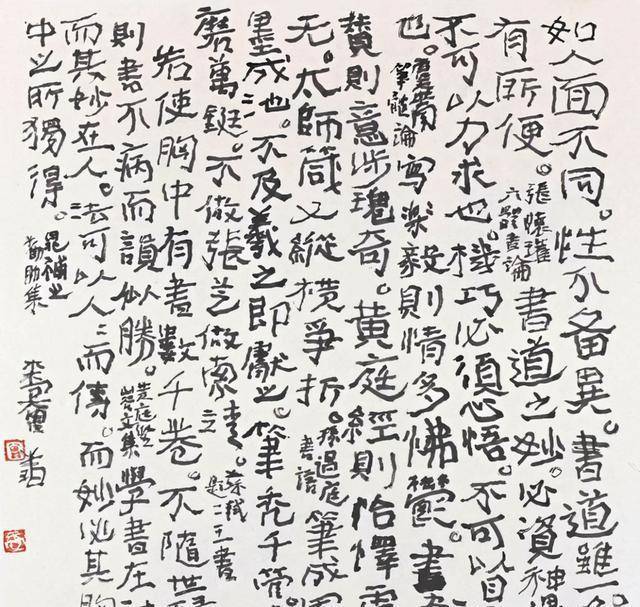 如人面不同。性分各異。書道雖一
有所便。張懷瓘六體書論 書道之妙。必資神
不可以力求也。機巧必須心悟。不可以目
也。虞世南筆髓論 寫樂毅則情多怫鬱。書
贊則意涉瑰奇。黃庭經則怡懌虛
无。太師箴又縱橫爭折。孫過庭書譜 筆成冢
墨成池。不及羲之即獻之。筆禿千管
磨萬鋌。不做張芝做索靖。蘇軾題二王書
若使胸中有書數千卷。不隨世
則書不病而韻似勝。黃庭堅山谷文集 學書在
而其妙在人。法可以人人而傳。而妙必其胸
中之所獨得。晁補之雞肋集
書